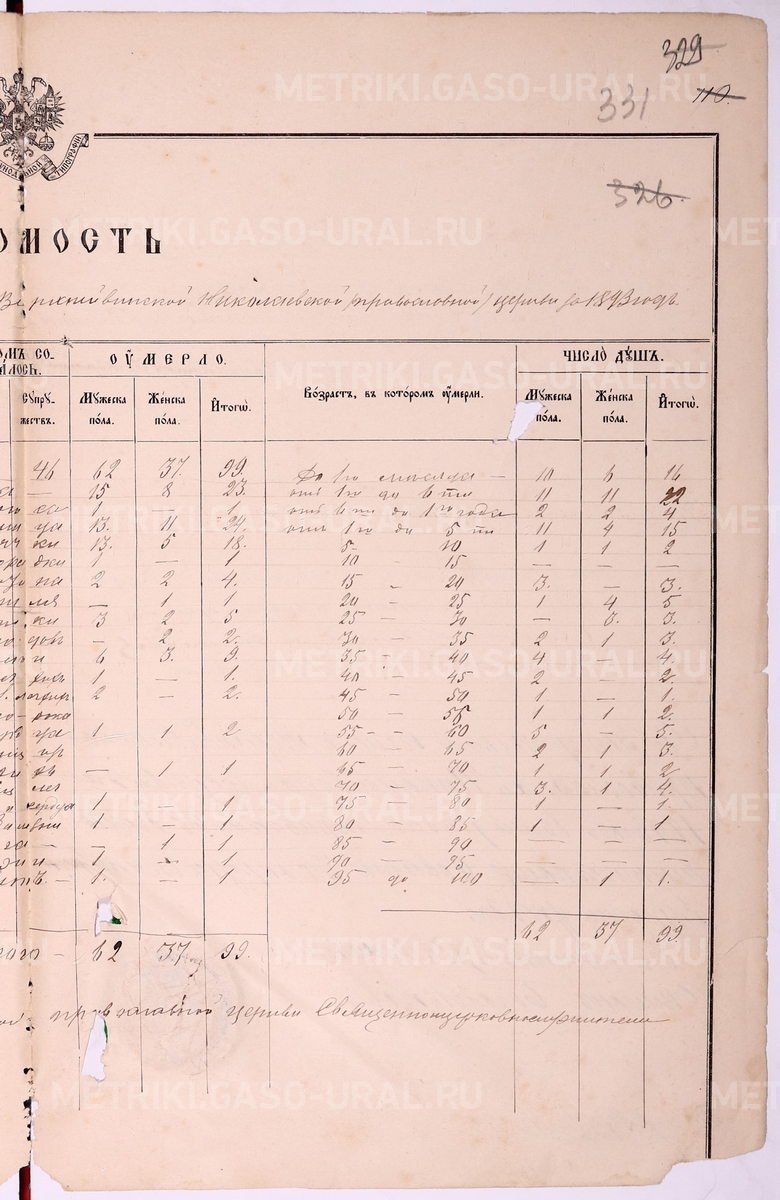 329
331 110.
326.
УНОДАЛЬНОЙ ТИПОГРАФИИ
ОМОСТЬ
Верхнейвинской Николаевской /православной/ церкви за 1893 годъ
ОМЪ СО-
АЛОСЬ. ОУМЕРЛО. ЧИСЛО ДУШЪ.
Супру-
жествъ. Мужеска
пола. Женска
пола. Итогѡ. Возрастъ, въ которомъ оумерли. Мужеска
пола. Женска
пола. Итогѡ.
46 62 37. 99. До 1го месяца — 10 6 16
— 15 8 23. отъ 1го до 6ти 11 11 22
1 — 1. отъ 6ти до 1го года 2 2 4
13. 11 24. отъ 1го до 5ти 11 4 15
13. 5 18. 5 - 10 1 1 2
1 — 1 10 - 15 — — —
2 2 4. 15 - 20 3. — 3.
— 1 1 20 - 25 1 4 5
3 2 5 25 - 30 — 3. 3.
— 2 2. 30 - 35 2 1 3.
6 3. 9. 35 - 40 4 — 4.
1 — 1. 40 - 45 2 — 2.
2 — 2. 45 - 50 1. — 1.
50 - 55 1 1 2.
1 1 2. 55 - 60 5 — 5.
60 - 65 2 1 3.
— 1 1 65 - 70 1 1 2
70 - 75 3. 1 4.
1 — 1 75 - 80 1 — 1.
1. — 1 80 - 85 1 — 1
— 1 1 85 - 90 — — —
1 - 1 90 - 95 — — —
1. — 1 95 до 100 — 1 1.
62 37 99.
62 37 99.
православной церкви Священноцерковнослужители
METRIKI.GASO-URAL.RU